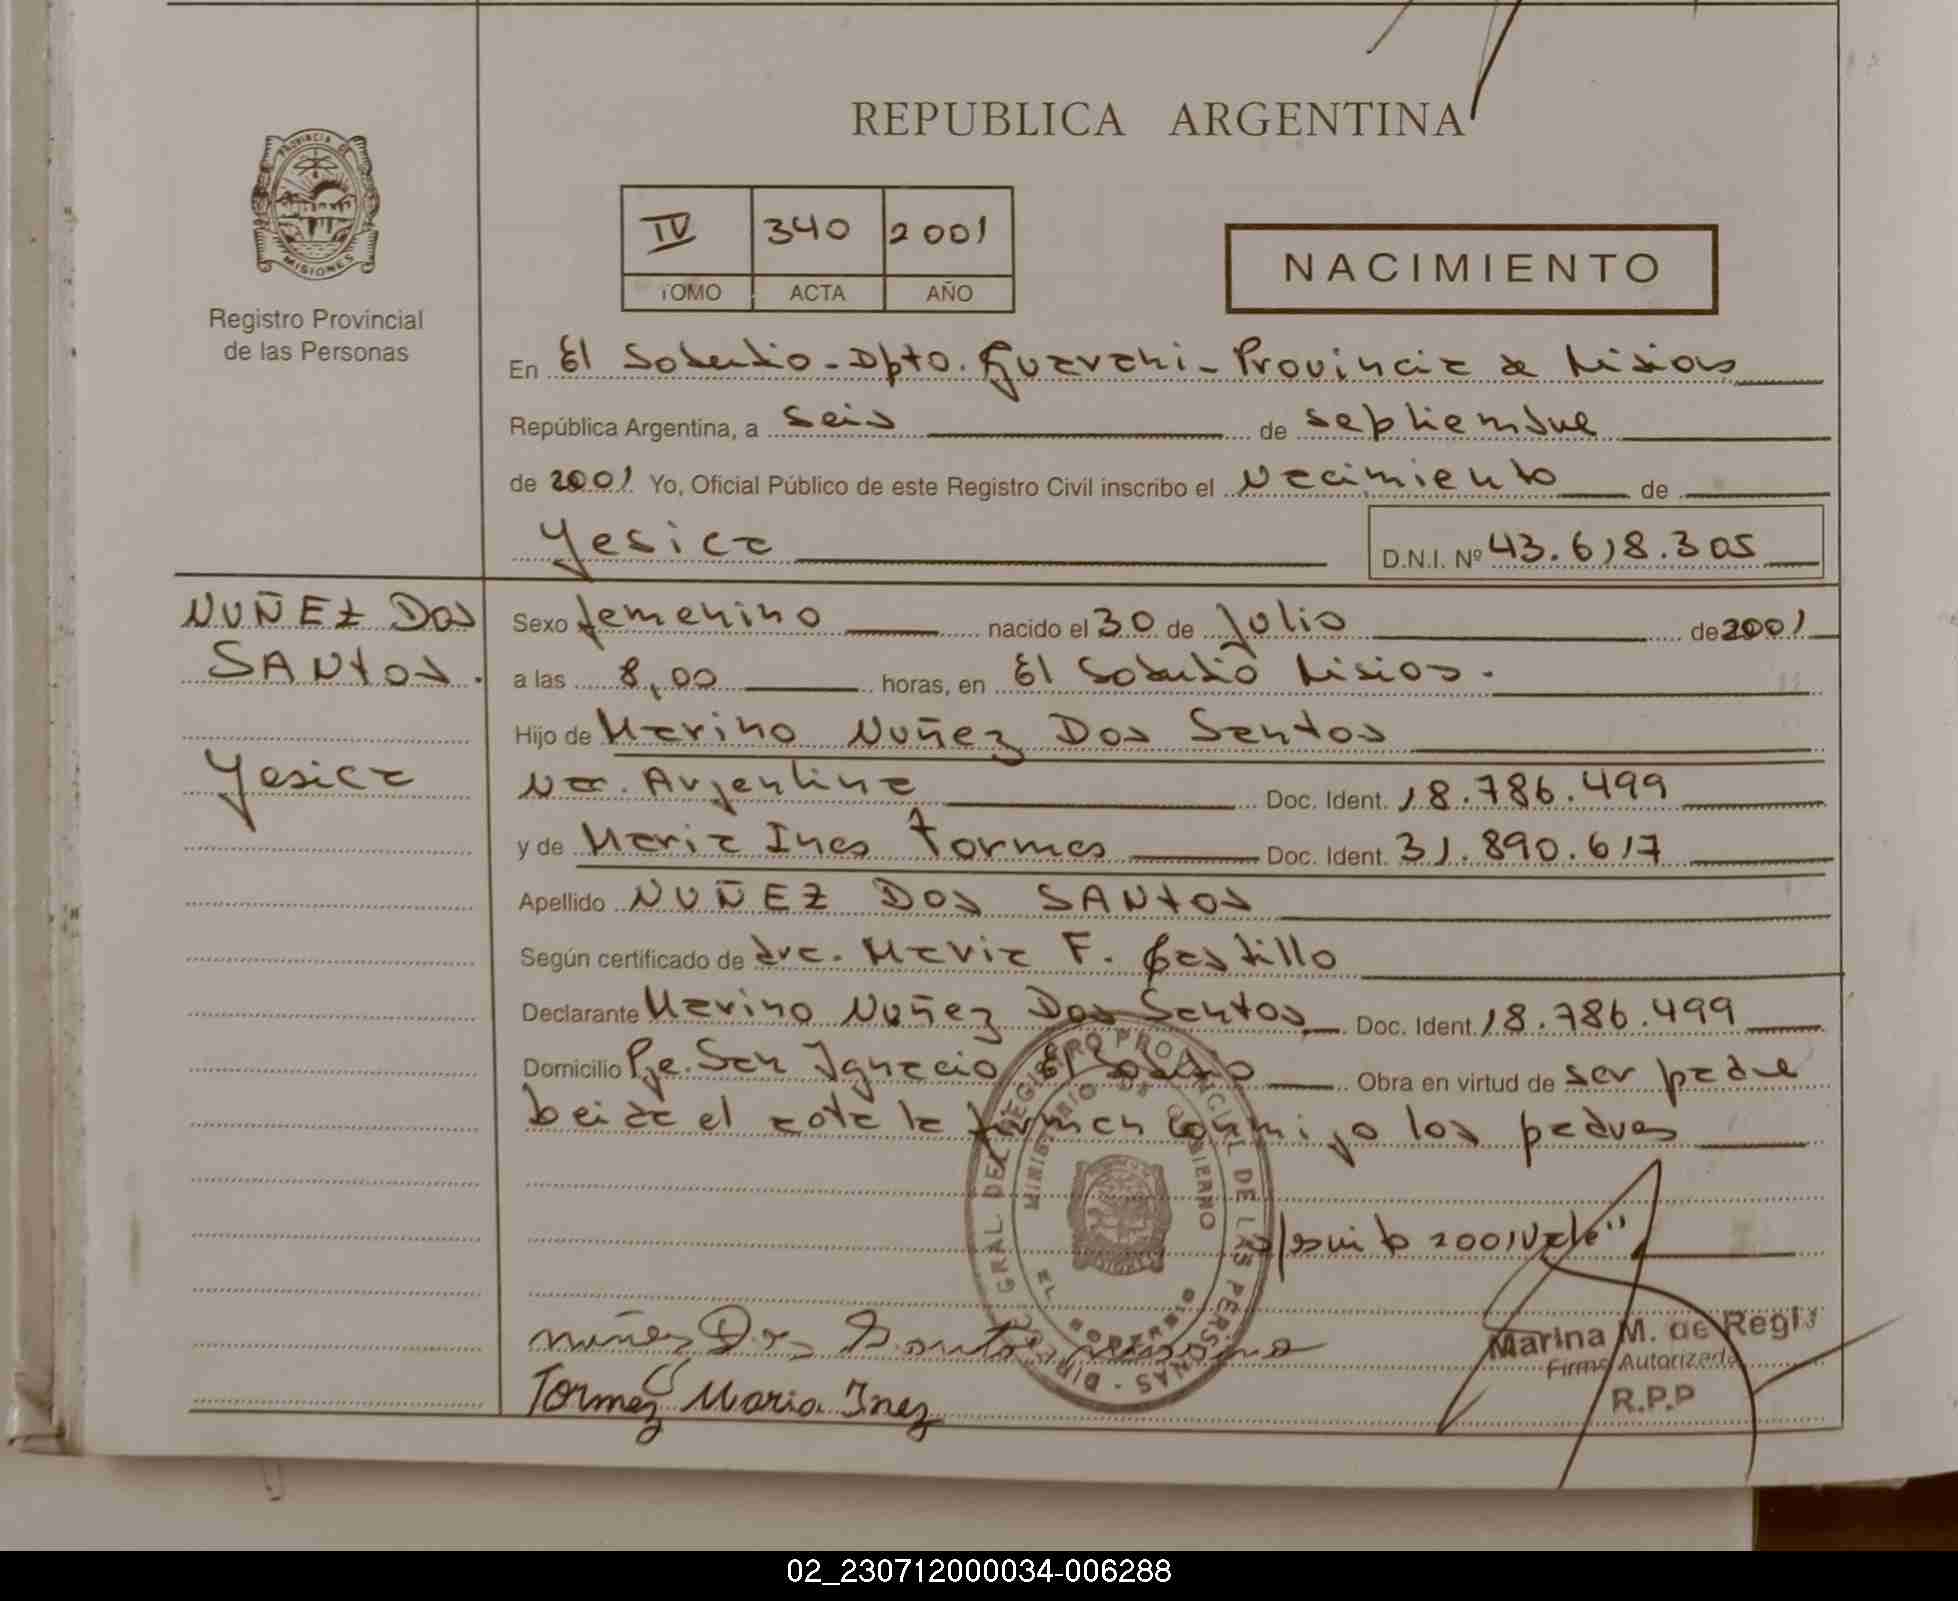 REPUBLICA ARGENTINA
PROVINCIA DE
MISIONES
Registro Provincial
de las Personas
IV 340 2001
TOMO ACTA AÑO
NACIMIENTO
En El Soberbio - Dpto. Guarani - Provincia de Misiones
República Argentina, a seis de septiembre
de 2001 Yo, Oficial Público de este Registro Civil inscribo el Nacimiento de
Yesica D.N.I. Nº 43.618.305
NUÑEZ DOS
SANTOS.
Yesica
Sexo femenino nacido el 30 de Julio de 2001
a las 8,00 horas, en El Soberbio Misiones.
Hijo de Marino Nuñez Dos Santos
Na. Argentina Doc. Ident. 18.786.499
y de Maria Ines Tormes Doc. Ident. 31.890.617
Apellido NUÑEZ DOS SANTOS
Según certificado de dra. Maria F. Castillo
Declarante Marino Nuñez Dos Santos Doc. Ident. 18.786.499
Domicilio Pje. San Ignacio El Soberbio Obra en virtud de ser padre
leida el acta la firman conmigo los padres
2001 Vale"
DIREC. GRAL DEL REGISTRO PROVINCIAL DE LAS PERSONAS -
MINISTERIO DE GOBIERNO
EL SOBERBIO
MISIONES
nuñez Dos Santos marino
Tormez Maria Inez
Marina M. de Regis
Firma Autorizada
R.P.P
02_230712000034-006288